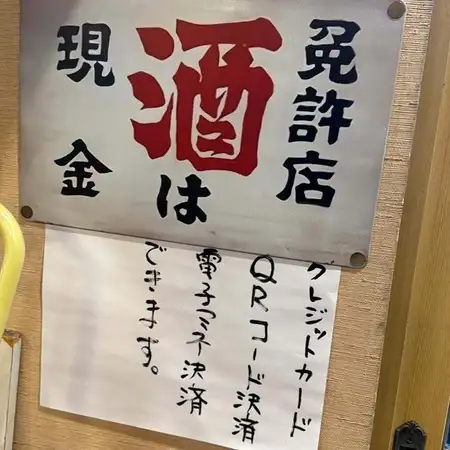 免許店
酒は
現金
クレジットカード
QRコード決済
電子マネ決済
できます。